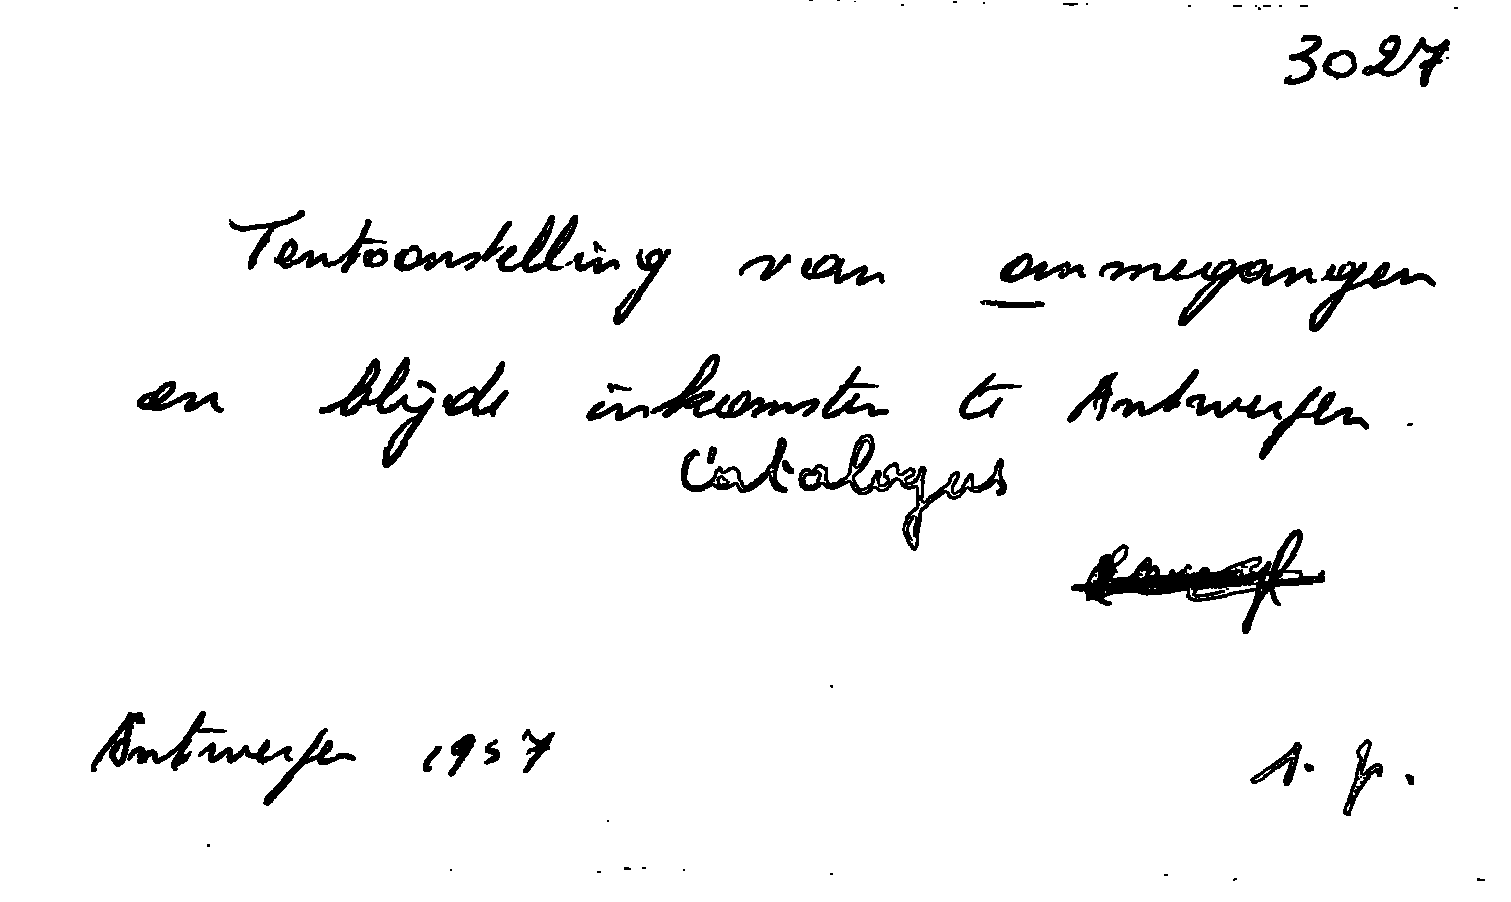 3027
Tentoonstelling van ommegangen
en blijde inkomsten te Antwerpen.
Catalogus
Antwerpen 1957
s. p.